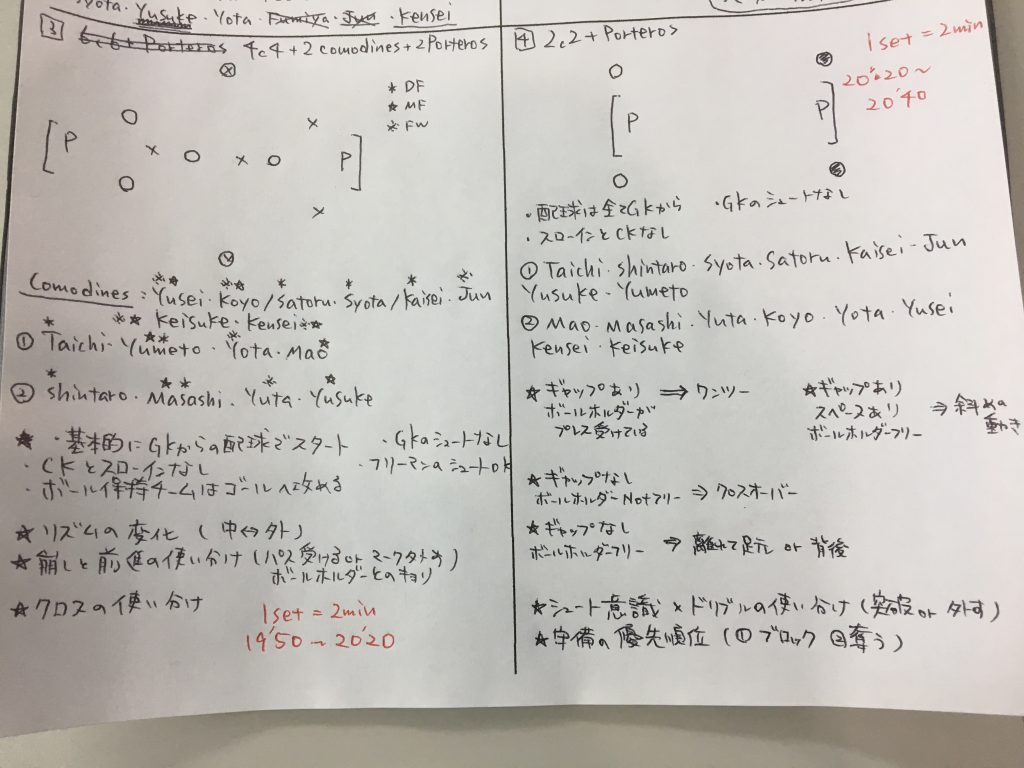 syota・Yusuke・Yota・Fumiya・Jun・Kensei
3 6c6+Porteros 4c4+2 comodines+2 Porteros
* DF
★ MF
※ FW
P P
Comodines : Yusei・Koyo/Satoru・Syota/Kaisei・Jun
Keisuke・Kensei
① Taichi・Yumeto・Yota・Mao
② shintaro・Masashi・Yuta・Yusuke
★ ・基本的にGKからの配球でスタート ・GKのシュートなし
・CKとスローインなし ・フリーマンのシュートOK
・ボール保持チームはゴールへ攻める
★ リズムの変化 (中↔外)
★ 崩しと前進の使い分け (パス受けるorマークタメす)
ボールホルダーとのキョリ
★ クロスの使い分け
1set=2min
19'50~20'20
4 2c2+Porteros
1set=2min
20'20~
20'40
P P
・配球は全てGKから ・GKのシュートなし
・スローインとCKなし
① Taichi・shintaro・Syota・Satoru・Kaisei・Jun
Yusuke・Yumeto
② Mao・Masashi・Yuta・Koyo・Yota・Yusei
Kensei・Keisuke
★ギャップあり ⇒ ワンツー
ボールホルダーが
プレス受けている
★ギャップあり
スペースあり ⇒ 斜めの
ボールホルダーフリー 動き
★ギャップなし
ボールホルダーNotフリー ⇒ クロスオーバー
★ギャップなし
ボールホルダーフリー ⇒ 離れて足元 or 背後
★シュート意識×ドリブルの使い分け(突破or外す)
★守備の優先順位 (①ブロック ②奪う)